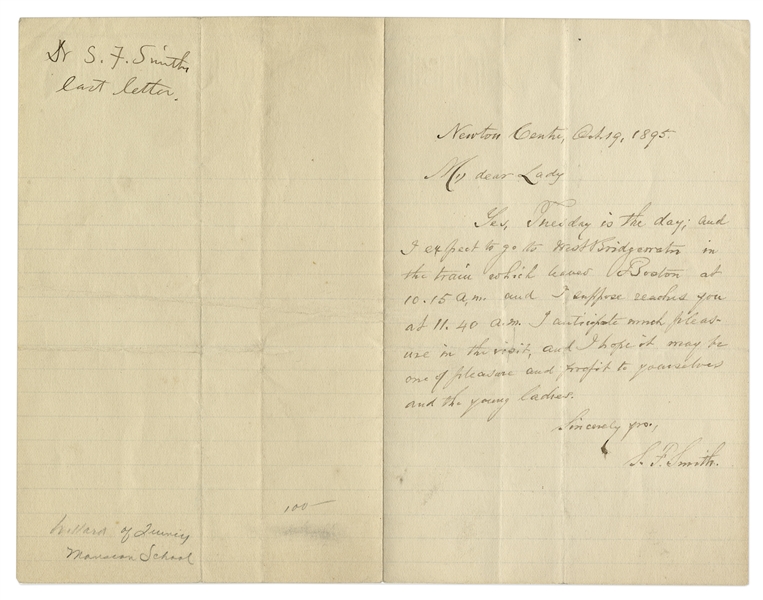 Dr S. F. Smith
last letter.
100-
of Quincy
Mansion School
Newton Centre, Oct. 19, 1895.
My dear Lady
Yes, Tuesday is the day; and
I expect to go to West Bridgewater in
the train which leaves Boston at
10.15 a.m. and I suppose reaches you
at 11.40 a.m. I anticipate much pleas-
ure in the visit, and I hope it may be
one of pleasure and profit to yourselves
and the young ladies.
Sincerely yrs.,
S. F. Smith.